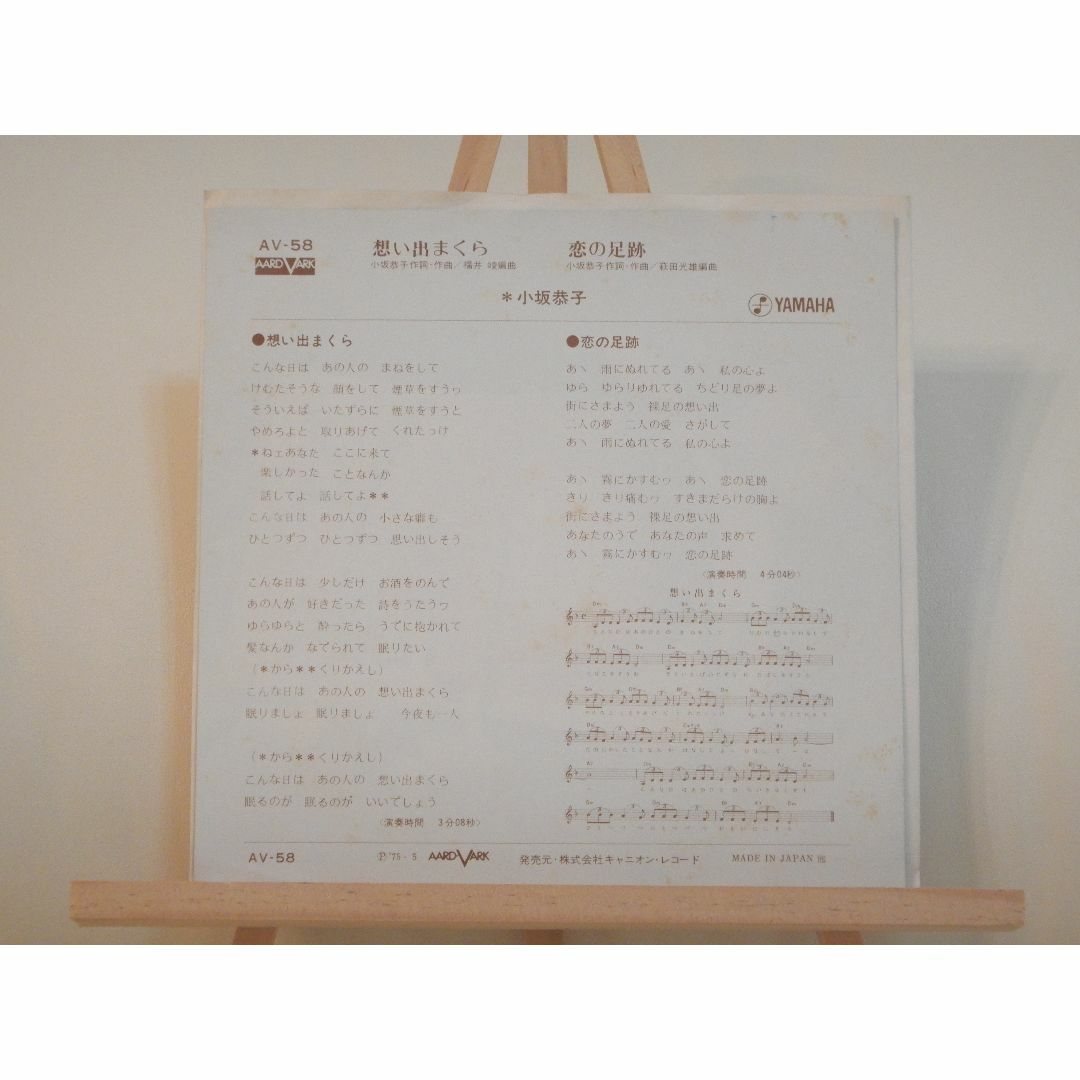 AV-58
AARDVARK
想い出まくら
小坂恭子作詞・作曲／福井 崚編曲
恋の足跡
小坂恭子作詞・作曲／萩田光雄編曲
＊小坂恭子
YAMAHA
●想い出まくら
こんな日は あの人の まねをして
けむたそうな 顔をして 煙草をすうっ
そういえば いたずらに 煙草をすうと
やめろよと 取りあげて くれたっけ
＊ねェあなた ここに来て
楽しかった ことなんか
話してよ 話してよ＊＊
こんな日は あの人の 小さな癖も
ひとつずつ ひとつずつ 思い出しそう
こんな日は 少しだけ お酒をのんで
あの人が 好きだった 詩をうたうヮ
ゆらゆらと 酔ったら うでに抱かれて
髪なんか なでられて 眠りたい
(＊から＊＊くりかえし)
こんな日は あの人の 想い出まくら
眠りましょ 眠りましょ 今夜も一人
(＊から＊＊くりかえし)
こんな日は あの人の 想い出まくら
眠るのが 眠るのが いいでしょう
〈演奏時間 3分08秒〉
●恋の足跡
あヽ 雨にぬれてる あヽ 私の心よ
ゆら ゆらりゆれてる ちどり足の夢よ
街にさまよう 裸足の想い出
二人の夢 二人の愛 さがして
あヽ 雨にぬれてる 私の心よ
あヽ 霧にかすむヮ あヽ 恋の足跡
きり きり痛むヮ すきまだらけの胸よ
街にさまよう 裸足の想い出
あなたのうで あなたの声 求めて
あヽ 霧にかすむヮ 恋の足跡
〈演奏時間 4分04秒〉
想い出まくら
AV-58
Ⓟ'75・5
AARDVARK
発売元・株式会社キャニオン・レコード
MADE IN JAPAN